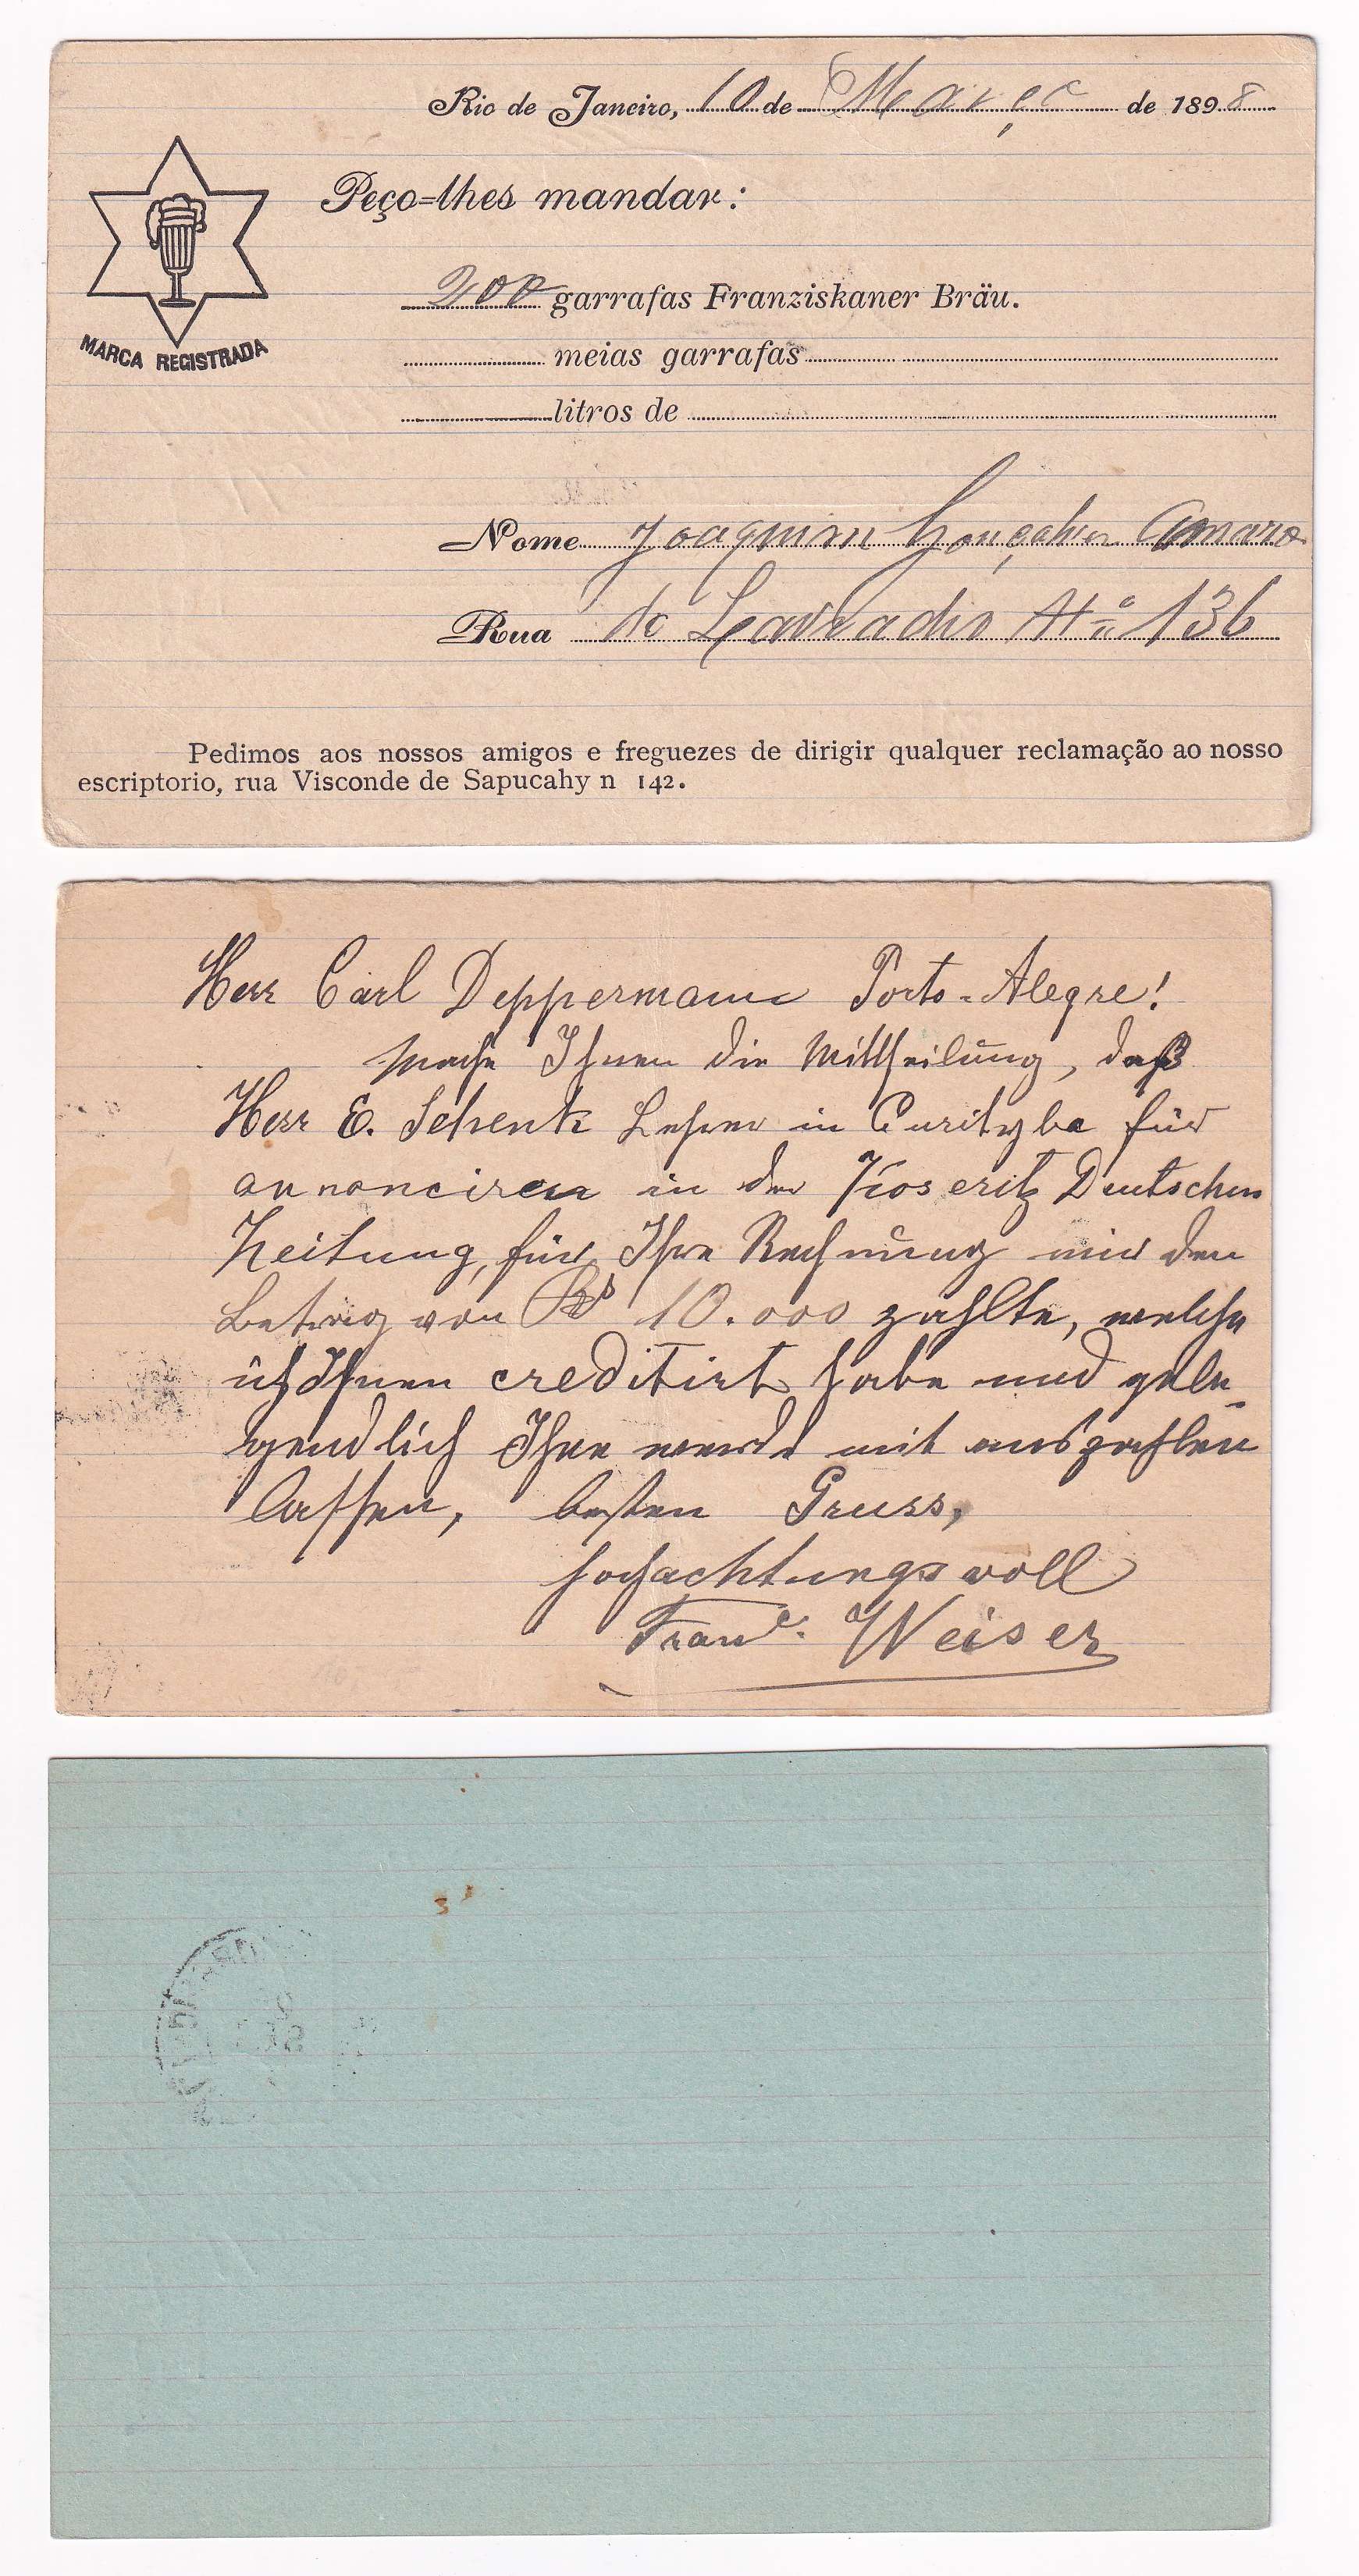 Rio de Janeiro, 10 de Março de 1898
Peço-lhes mandar:
200 garrafas Franziskaner Bräu.
meias garrafas
litros de
MARCA REGISTRADA
Nome Joaquim Gonçalves Amaro
Rua do Lavradio No 136
Pedimos aos nossos amigos e freguezes de dirigir qualquer reclamação ao nosso
escriptorio, rua Visconde de Sapucahy n 142.
Herr Carl Deppermann Porto-Alegre!
Mache Ihnen die Mittheilung, daß
Herr E. Schenk Lehrer in Curityba für
annonciren in der Koseritz Deutschen
Zeitung, für Ihre Rechnung mir den
Betrag von Rs 10.000 zahlte, welche
ich Ihnen creditirt habe und gele-
gendlich Ihne werde mit auszahlen
lassen, besten Gruss,
hochachtungsvoll
Weiser